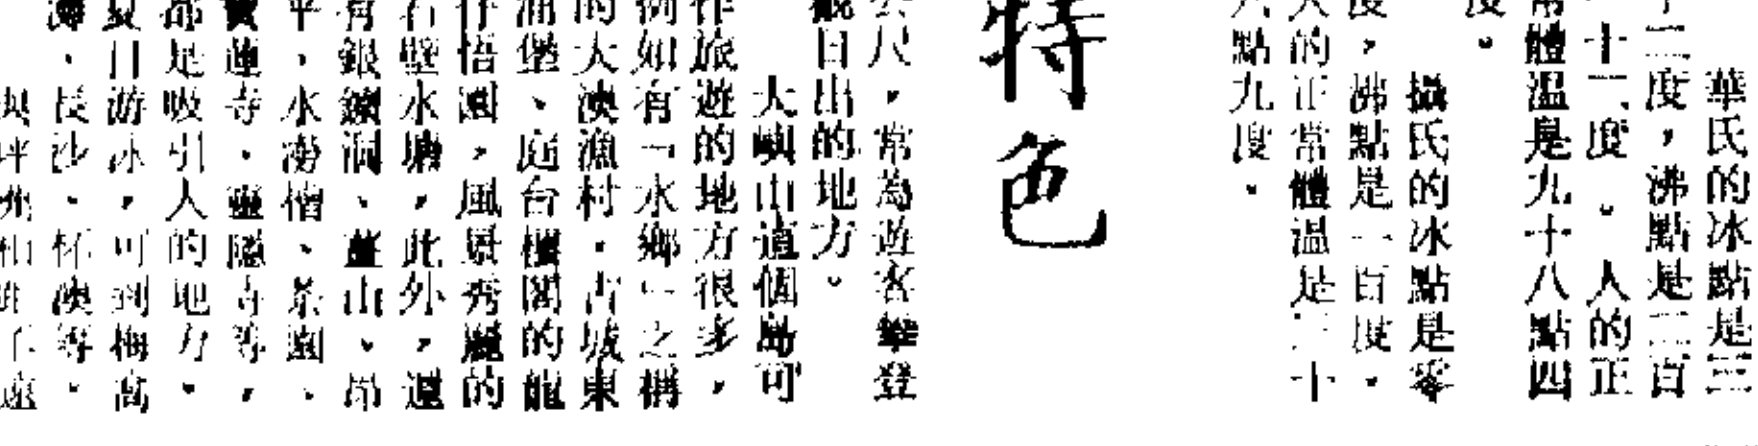 華氏的冰點是三
十二度，沸點是二百
一十二度。人的正
常體溫是九十八點四
度。
攝氏的冰點是零
度，沸點是一百度。
人的正常體溫是三十
六點九度。
特色
公尺，常為遊客攀登
觀日出的地方。
大嶼山這個島可
作旅遊的地方很多，
例如有「水鄉」之稱
的大澳漁村。古城東
涌堡、庭台樓閣的龍
仔悟園，風景秀麗的
石壁水塘，此外，還
有銀鑛洞、薑山、昂
平，水澇漕、茶園、
寶蓮寺、靈隱寺等，
都是吸引人的地方。
夏日游泳，可到梅窩
灣、長沙、杯澳等。
與坪州相距不遠